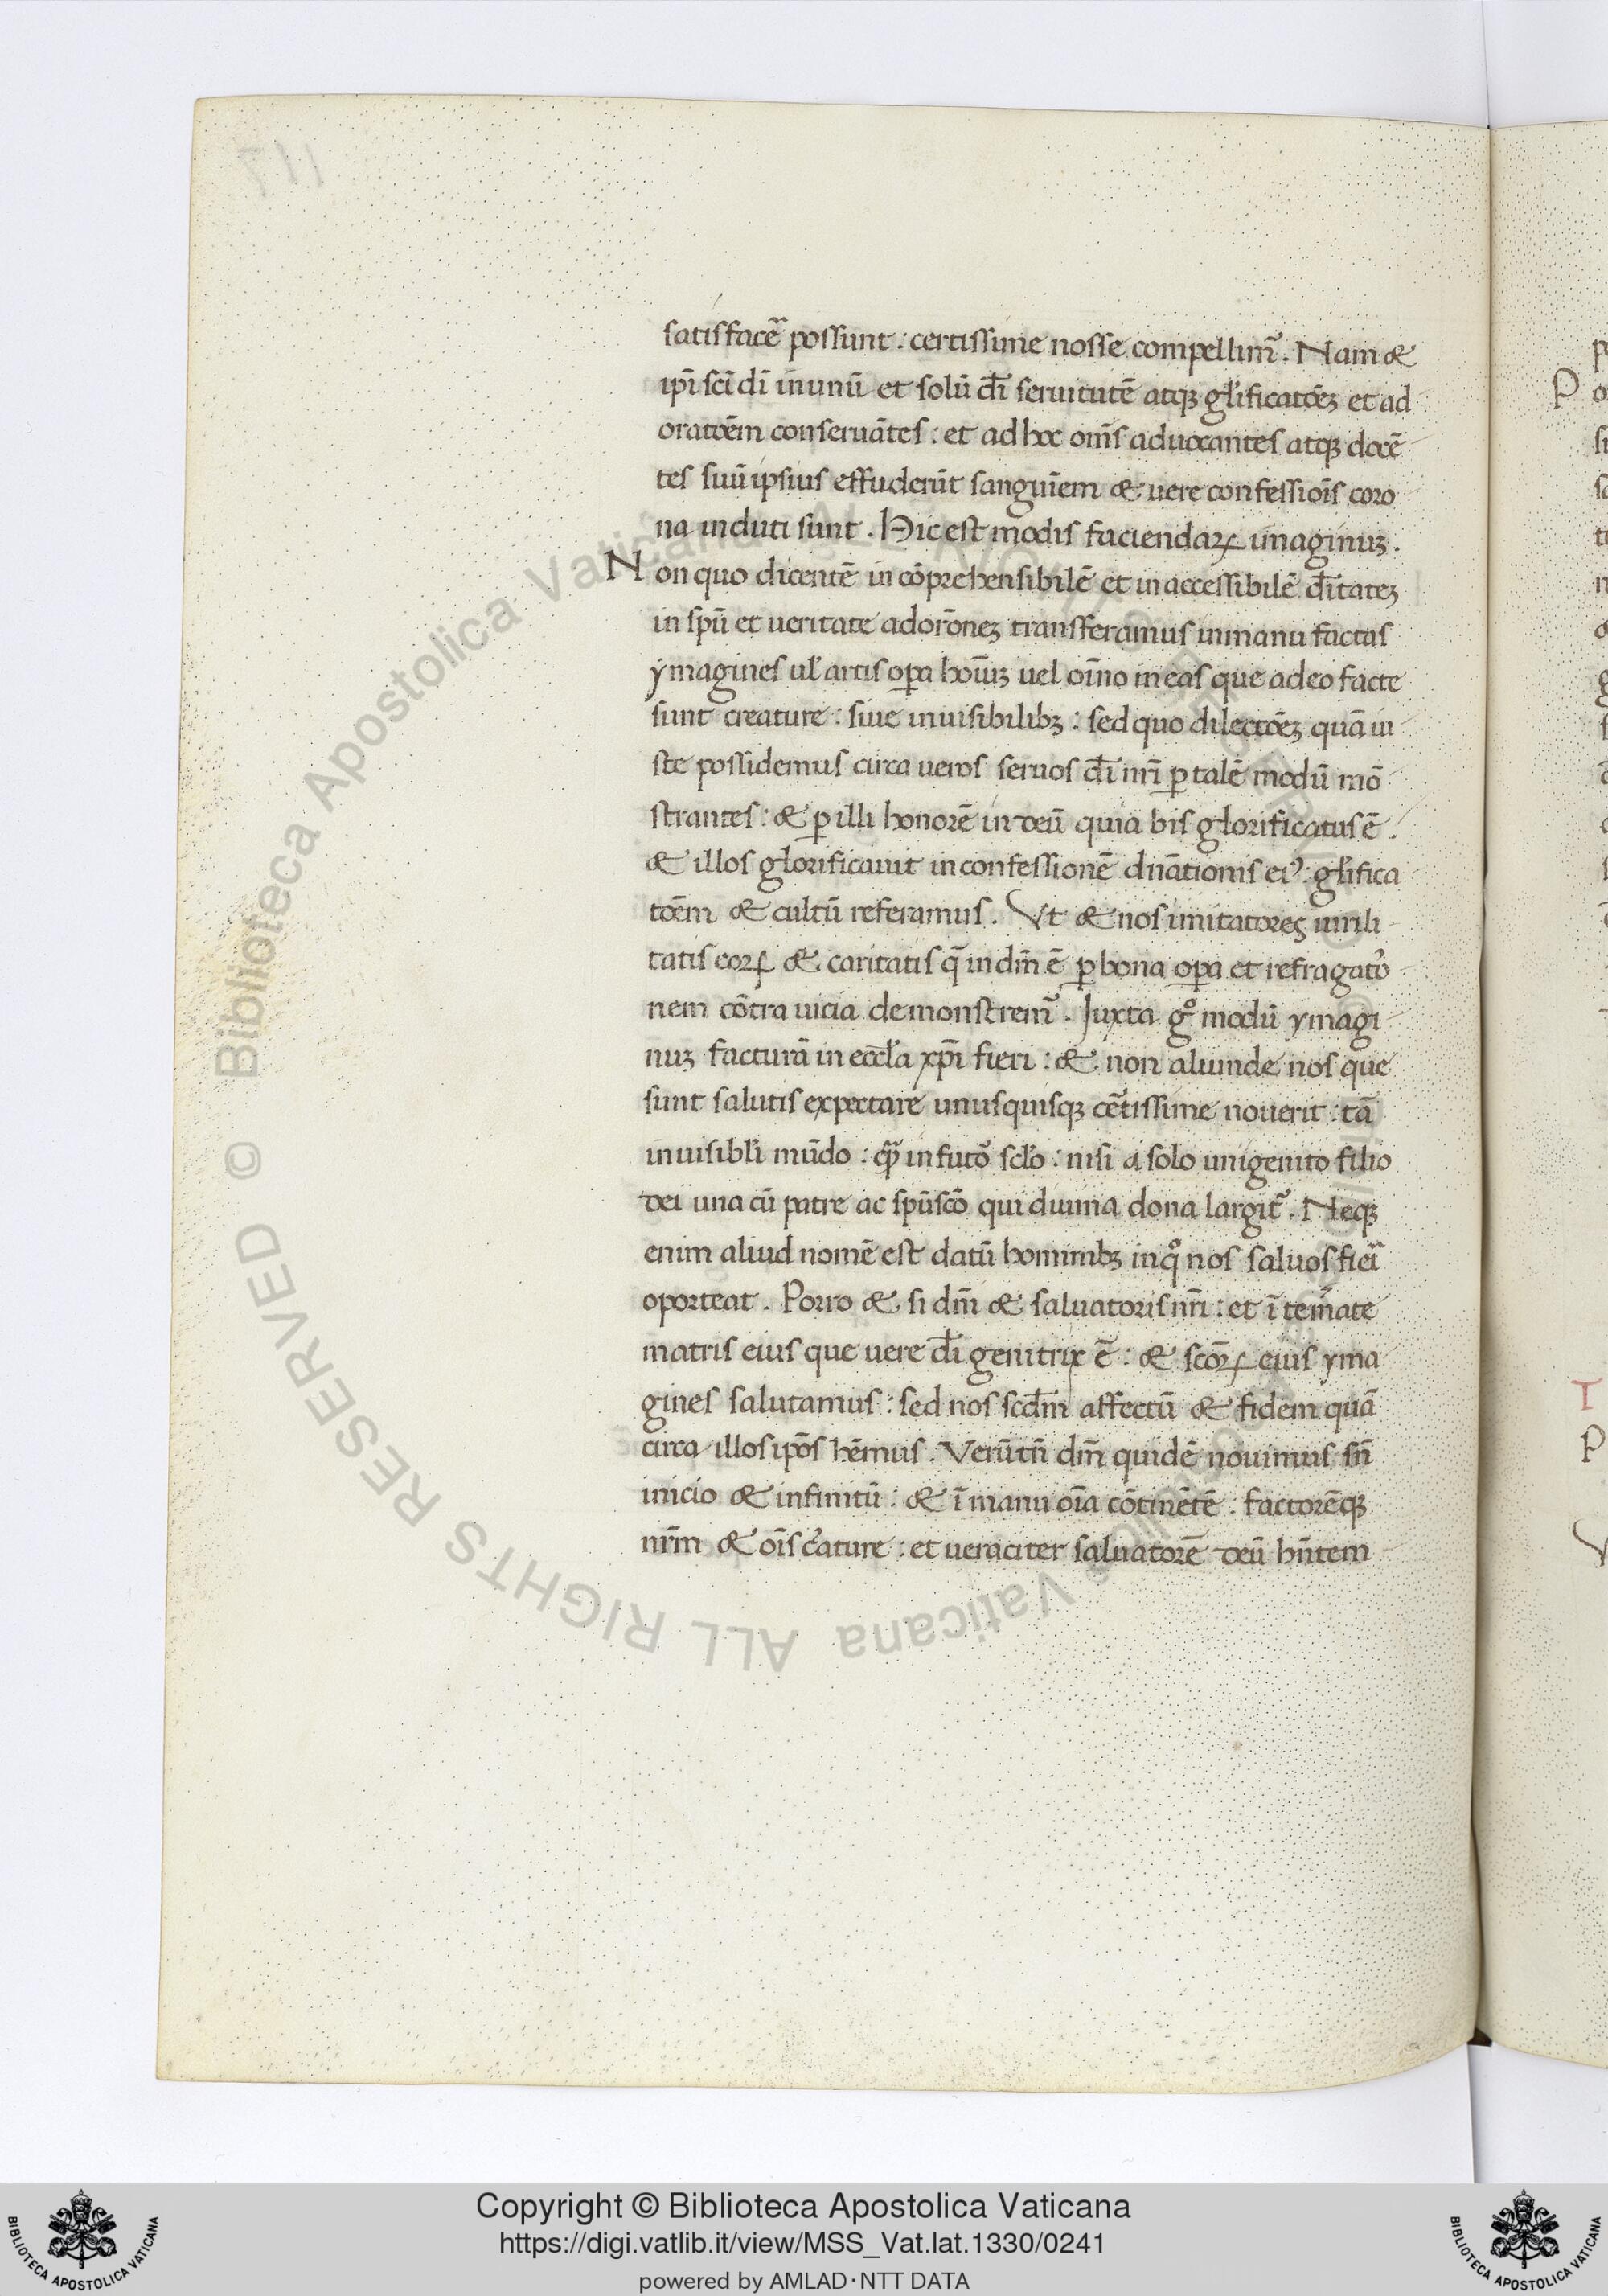 satisfacē possunt : certissime nosse compellim᷒. Nam &
ip̄i sc̄i dī in unū et solū dī seruitutē atqꝫ gl̄ificatōeꝫ et ad
oratōem conseruātes : et ad hoc om̄s aduocantes atqꝫ docē
tes suū ipsius effuderūt sanguīem & uere confessiōis coro
na induti sunt . Hic est modis faciendaꝝ imaginuꝫ .
Non quo dicentē in cōprehensibilē et in accessibilē dītateꝫ
in spū et ueritate adorōneꝫ transferamus in manu factas
ymagines ul̄ artis oꝑa hoīuꝫ uel oīno in eas que adeo facte
sunt creature : siue inuisibilibꝫ : sed quo dilectōeꝫ quā iu
ste possidemus circa ueros seruos dī nr̄i ꝑ talē modū mō
strantes : & ꝑ illi honorē in deū quia bis glorificatus ē .
& illos glorificauit in confessionē dn̄ationis ei᷒ : gl̄ifica
tōem & cultū referamus . Vt & nos imitatores uirili
tatis eoꝝ & caritatis q̄ in dm̄ ē ꝑ bona oꝑa et refragatō
nem cōtra uicia demonstrem᷒ . Iuxta gͦ modū ymagi
nuꝫ facturā in eccl̄a xp̄i fieri : & non aliunde nos que
sunt salutis expectare unusquisqꝫ cētissime nouerit : tā
in uisibl̄i mūdo : qᷓ in futō scl̄o : nisi a solo unigenito filio
dei una cū patre ac spūscō qui diuina dona largit᷒ . Neqꝫ
enim aliud nomē est datū hominibꝫ in qͦ nos saluos fiei᷑
oporteat . Porro & si dm̄ & saluatoris nr̄i : et ī tem̄ate
matris eius que uere dī genitrix ē : & scōꝝ eius yma
gines salutamus : sed nos scdm̄ affectū & fidem quā
circa illos ipōs hēmus . Verūtn̄ dm̄ quidē nouimus sn̄
inicio & infinitū : & ī manu oīa cōtinētē : factorēqꝫ
nr̄m & oīs c̄ature : et ueraciter saluatorē deū hn̄tem
P
T
P
V
© Biblioteca Apostolica Vaticana ALL RIGHTS RESERVED
Copyright © Biblioteca Apostolica Vaticana
https://digi.vatlib.it/view/MSS_Vat.lat.1330/0241
powered by AMLAD·NTT DATA
BIBLIOTECA APOSTOLICA VATICANA
BIBLIOTECA APOSTOLICA VATICANA